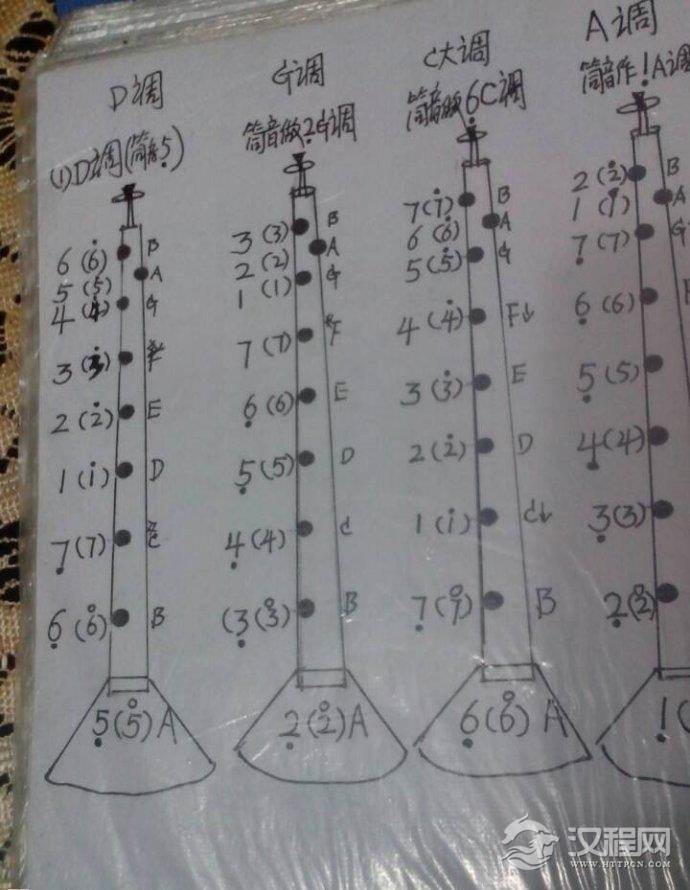 D调
(1)D调(筒音5̣)
6(6̇) B
5(5̇) A
4(4̇) G
3(3̇) #F
2(2̇) E
1(1̇) D
7̣(7) #C
6̣(6) B
5̣(5)A
G调
筒音做2̣G调
3(3̇) B
2(2̇) A
1(1̇) G
7(7) #F
6̣(6) E
5̣(5) D
4̣(4) C
(3̣(3) B
2̣(2)A
C大调
筒音做6̣C调
7(7̇) B
6(6̇) A
5(5̇) G
4(4̇) F↓
3(3̇) E
2(2̇) D
1(1̇) C↓
7̣(7) B
6̣(6)A
A调
筒音作1̣A调
2(2̇) B
1(1̇) A
7̣(7) G
6̣(6)
5̣(5)
4̣(4)
3̣(3)
2̣(2)
1̣(
汉程网
WWW.HTTPCN.COM